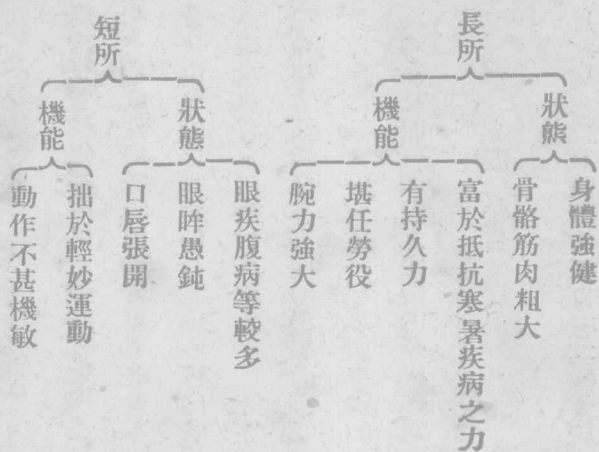 長所
狀態
身體強健
骨骼筋肉粗大
機能
富於抵抗寒暑疾病之力
有持久力
堪任勞役
腕力強大
短所
狀態
眼疾腹病等較多
眼眸愚鈍
口唇張開
機能
拙於輕妙運動
動作不甚機敏